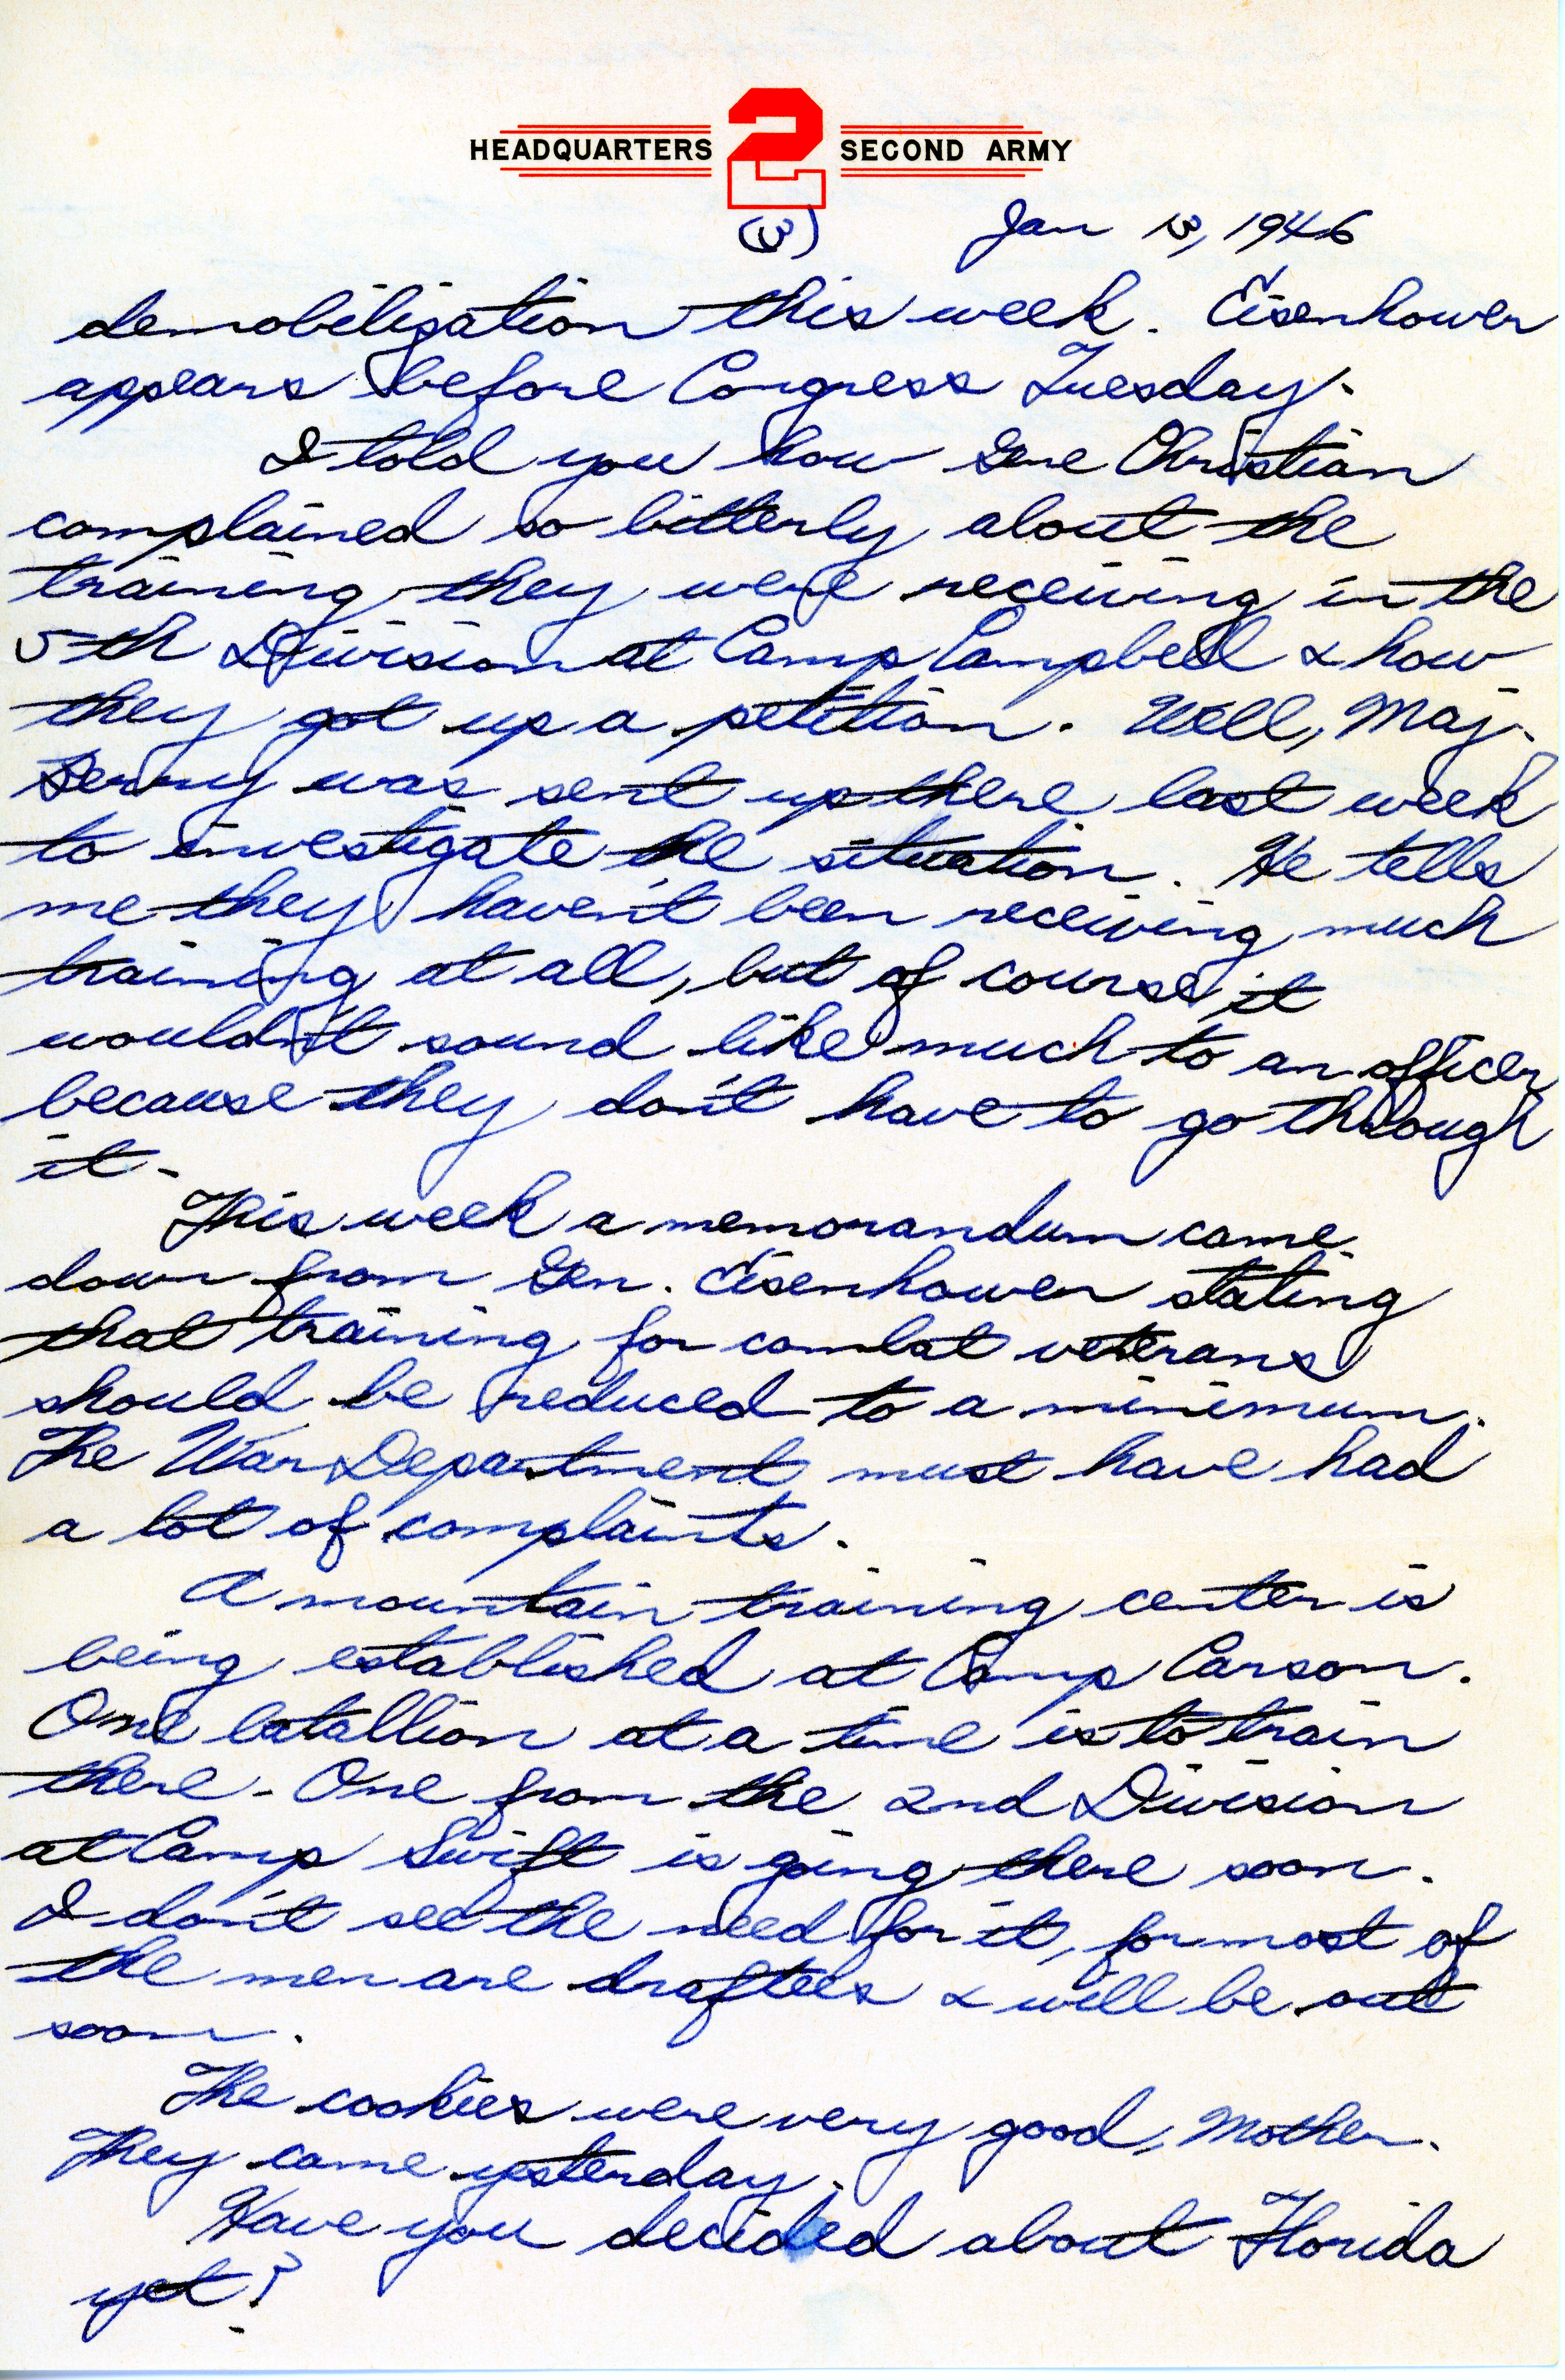 HEADQUARTERS 2 SECOND ARMY
(3) Jan 13, 1946
demobilization this week. Eisenhower
appears before Congress Tuesday.
I told you how Gene Christian
complained so bitterly about the
training they were receiving in the
5th Division at Camp Campbell & how
they got up a petition. Well, Maj.
was sent up there last week
to investigate the situation. He tells
me they haven't been receiving much
training at all, but of course it
wouldn't sound like much to an officer
because they don't have to go through
it.
This week a memorandum came
down from Gen. Eisenhower stating
that training for combat veterans
should be reduced to a minimum.
The War Department must have had
a lot of complaints.
A mountain training center is
being established at Camp Carson.
One batallion at a time is to train
there. One from the 2nd Division
at Camp Swift is going there soon.
I don't see the need for it, for most of
the men are draftees & will be out
soon.
The cookies were very good, Mother.
They came yesterday.
Have you decided about Florida
yet?